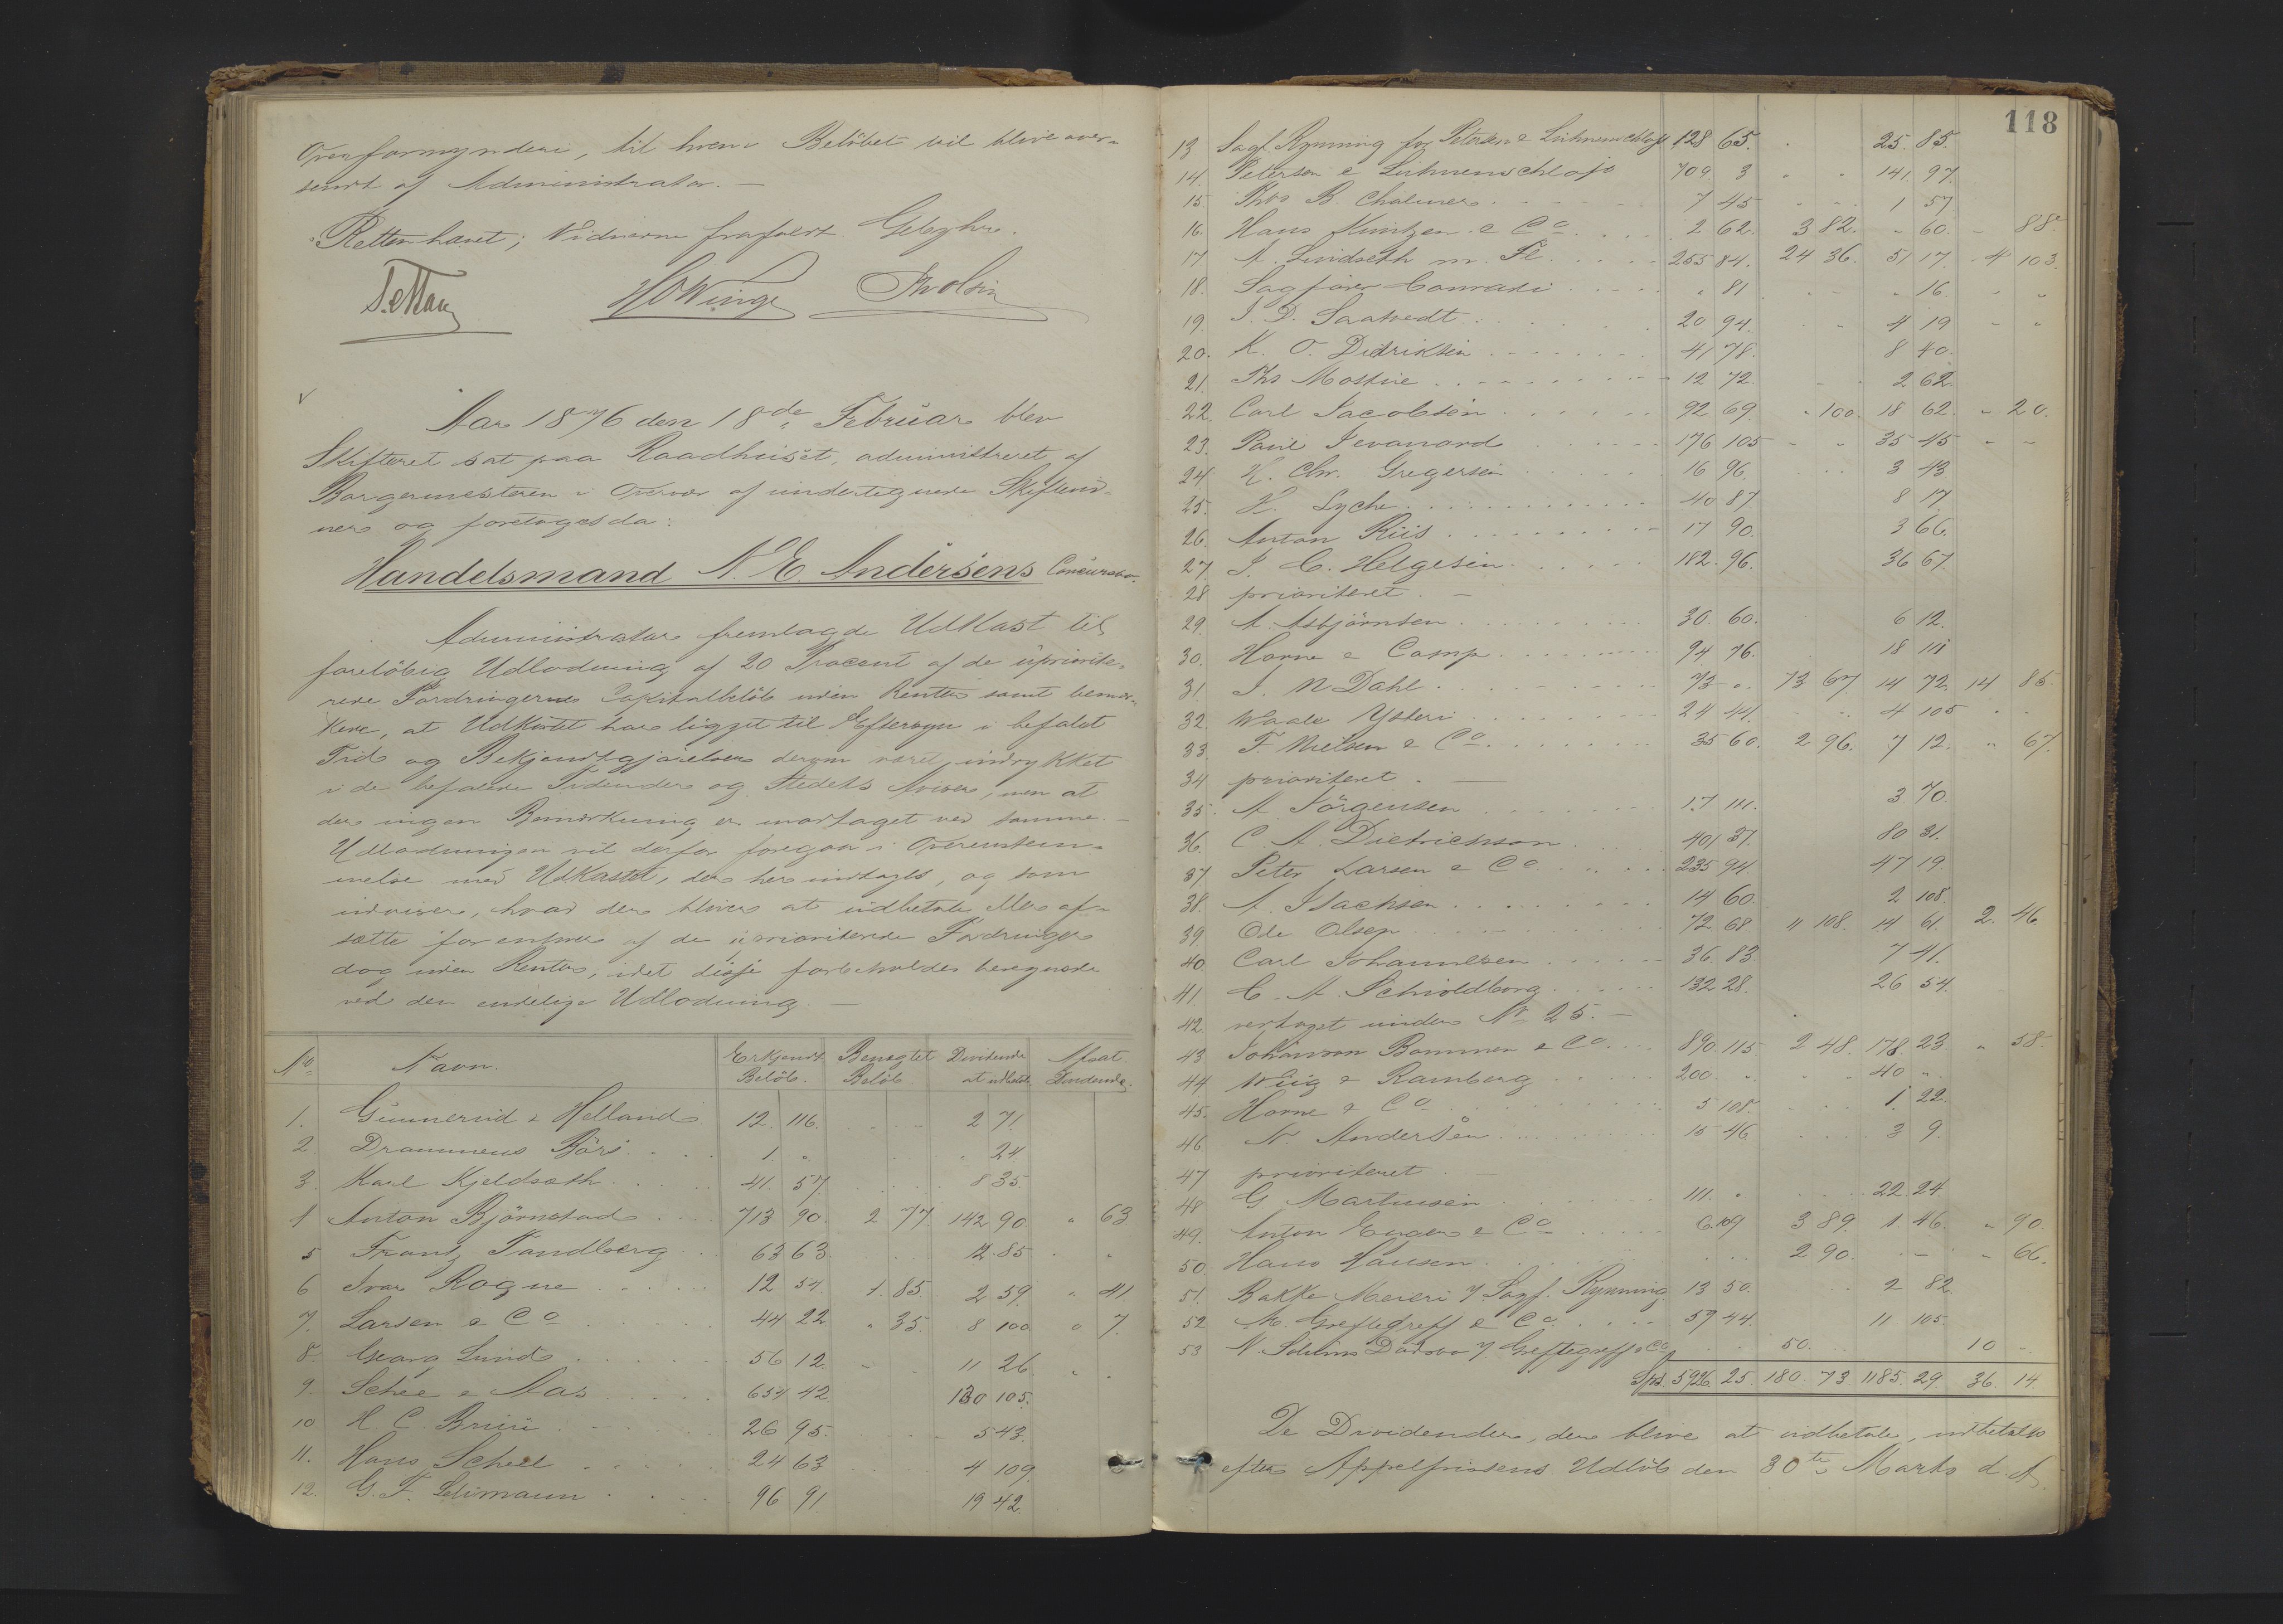 Overformynderi, til hvem Beløbet vil blive over-
sendt af Administrator. —
Retten hævet; Vidnerne frafaldt Gebyhr.
HO Winge
Aar 1876 den 18de Februar blev
Skifteret sat paa Raadhuset, administreret af
Borgermesteren i Overvær af undertegnede Skiftevid-
ner og foretoges da:
Handelsmand N. E. Andersens Concursbo.
Administrator fremlagde Udkast til
foreløbig Udlodning af 20 Procent af de upriorite-
rede Fordringernes Capitalbeløb uden Renter samt bemær-
kede, at Udkastet har ligget til Eftersyn i befalet
Tid og Bekjendtgjørelser derom været indrykket
i de befalede Tidender og Stedets Aviser, men at
der ingen Bemærkning er modtaget ved samme. —
Udlodningen vil derfor foregaa i Overenstem-
melse med Udkastet, der her indtages, og som
udviser, hvad der bliver at udbetale eller af-
sætte for enhver af de uprioriterede Fordringer
dog uden Renter, idet disse forbeholdes beregnede
ved den endelige Udlodning. —
No Navn. Erkjendt Beløb. Benægtet Beløb Dividende at udbetale Afsat Dividende.
1. Gunnerud & Helland 12. 116. 2 71.
2 Drammens Børs 1. " 24
3. Karl Kjeldsæth 41. 57. 8 35
4 Anton Bjørnstad 713 90. 2 77 142 90 " 63
5 Frantz Sandberg 63 63 12. 85
6 Ivar Rogne 12 54 1. 85 2 59 " 41.
7. Larsen & Co 44 22 " 35. 8 100 " 7.
8. Georg Lund 56 12. 11 26
9. Schee & Aas 654 42 130 105.
10 H. C. Bruu 26 95. 5 43.
11. Hans Scheel 24 63 4 109
12. G. F. 96 91 19 42
118
13 Sagf. Rynning for Petersen & 128 65. 25. 85.
14. Petersen & 709 3 141. 97.
15. Ths B. Chalmers 7 45 1 57
16. Hans Kuntzen & Co 2 62. 3 82. " 60. " 88.
17 A. Lindseth m. Fl. 255 84. 24 36. 51 17. 4 103.
18. Sagfører Conradi " 81 " 16.
19. J. D. Saatvedt 20 94. 4 19
20. K. O. Didriksen 41 78. 8 40.
21. Ths Mostue 12 72. 2 62.
22. Carl Jacobsen 92 69. " 100. 18 62. " 20.
23. Paul 176 105 35 45
24. H. Chr. Gregersen 16 96. 3 43
25. H. Lyche 40 87. 8 17.
26. Anton Riis 17 90. 3 66.
27. J. C. Helgesen 182. 96. 36 67.
28 prioriteret. —
29. A. Asbjørnsen 30. 60. 6 12.
30. Horne & Comp 94 76. 18 111
31. J. N Dahl 73 " 73 67 14 72. 14 85.
32. Waale Ysteri 24 44. 4 105
33. F. Nielsen & Co 35 60. 2 96. 7 12. " 67.
34 prioriteret. —
35. A. Jörgensen 17 111. 3 70.
36. C. A. Dietrichson 401 37. 80 31.
37 Peter Larsen & Co 235 94 47 19
38. A. Isachsen 14 60. 2 108.
39 Ole Olsen 72. 68 " 108. 14 61. 2. 46.
40. Carl Johannesen 36. 83. 7 41.
41. C. A. Schioldborg 132 28. 26 54.
42. vertaget under No 25. —
43 Johannson Bommen & Co 890. 115 2 48. 178 23 " 58.
44. Wiig & Ramberg 200 " 40 "
45. Horne & Co 5 108. 1. 22.
46 N. Andersen 15 46 3 9.
47 prioriteret. —
48 G Martinsen 111. " 22. 24
49. Anton Enger & Co 6. 109 3 89. 1. 46. " 90.
50. Hans Hansen 2 90. " 66.
51. Bakke Meieri v. Sagf. Rynning 13 50. 2 82.
52 M. Greftegreff & Co 59 44. 11 105
53 N. Dødsbo v. Greftegreff & Co 50. 10
Spd. 5926. 25. 180. 73. 1185. 29. 36. 14.
De Dividender, der blive at udbetale, udbetales
efter Appelfristens Udløb den 30te Marts d. A.